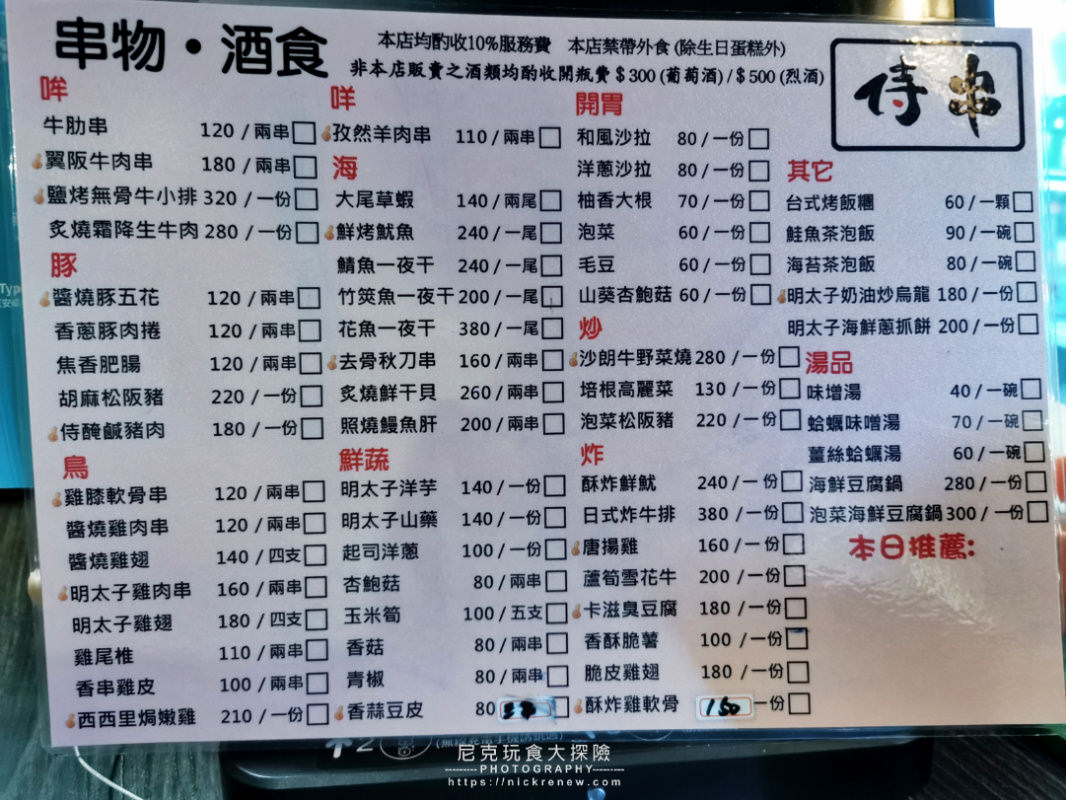 串物・酒食
本店均酌收10%服務費 本店禁帶外食 (除生日蛋糕外)
非本店販賣之酒類均酌收開瓶費 $300 (葡萄酒) / $500 (烈酒)
侍串
哞
牛肋串 120 / 兩串
翼阪牛肉串 180 / 兩串
鹽烤無骨牛小排 320 / 一份
炙燒霜降生牛肉 280 / 一份
豚
醬燒豚五花 120 / 兩串
香蔥豚肉捲 120 / 兩串
焦香肥腸 120 / 兩串
胡麻松阪豬 220 / 一份
侍醃鹹豬肉 180 / 一份
鳥
雞膝軟骨串 120 / 兩串
醬燒雞肉串 120 / 兩串
醬燒雞翅 140 / 四支
明太子雞肉串 160 / 兩串
明太子雞翅 180 / 四支
雞尾椎 110 / 兩串
香串雞皮 100 / 兩串
西西里焗嫩雞 210 / 一份
咩
孜然羊肉串 110 / 兩串
海
大尾草蝦 140 / 兩尾
鮮烤魷魚 240 / 一尾
鯖魚一夜干 240 / 一尾
竹筴魚一夜干 200 / 一尾
花魚一夜干 380 / 一尾
去骨秋刀串 160 / 兩串
炙燒鮮干貝 260 / 兩串
照燒鰻魚肝 200 / 兩串
鮮蔬
明太子洋芋 140 / 一份
明太子山藥 140 / 一份
起司洋蔥 100 / 一份
杏鮑菇 80 / 兩串
玉米筍 100 / 五支
香菇 80 / 兩串
青椒 80 / 兩串
香蒜豆皮 80
開胃
和風沙拉 80 / 一份
洋蔥沙拉 80 / 一份
柚香大根 70 / 一份
泡菜 60 / 一份
毛豆 60 / 一份
山葵杏鮑菇 60 / 一份
炒
沙朗牛野菜燒 280 / 一份
培根高麗菜 130 / 一份
泡菜松阪豬 220 / 一份
炸
酥炸鮮魷 240 / 一份
日式炸牛排 380 / 一份
唐揚雞 160 / 一份
蘆筍雪花牛 200 / 一份
卡滋臭豆腐 180 / 一份
香酥脆薯 100 / 一份
脆皮雞翅 180 / 一份
酥炸雞軟骨 150 一份
其它
台式烤飯糰 60 / 一顆
鮭魚茶泡飯 90 / 一碗
海苔茶泡飯 80 / 一碗
明太子奶油炒烏龍 180 / 一份
明太子海鮮蔥抓餅 200 / 一份
湯品
味增湯 40 / 一碗
蛤蠣味噌湯 70 / 一碗
薑絲蛤蠣湯 60 / 一碗
海鮮豆腐鍋 280 / 一份
泡菜海鮮豆腐鍋 300 / 一份
本日推薦:
尼克玩食大探險
PHOTOGRAPHY
https://nickrenew.com